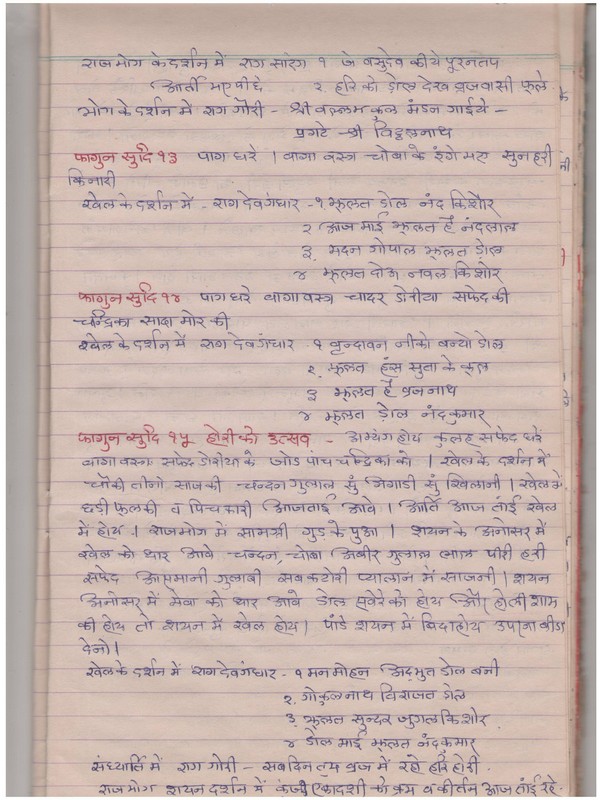 राजभोग के दर्शन में राग सारंग १ जे वसुदेव कीये पूरनतप
आर्ती भए पीछे २ हरि को डोल देख व्रजवासी फूले
भोग के दर्शन में राग गौरी - श्री वल्लभ कुल मंडन गाईये -
प्रगटे श्री विट्ठलनाथ
फागुन सुदि १३ पाग धरे । वागा वस्त्र चोबा के रंगे भए सुनहरी
किनारी
खेल के दर्शन में - राग देवगंधार - १ झूलत डोल नंद किशौर
२ आज माई झूलत हैं नंदलाल
३. मदन गोपाल झूलत डोल
४ झूलत दोऊ नवल किशोर
फागुन सुदि १४ पाग धरे वागा वस्त्र चादर डोरीया सफेद की
चन्द्रिका सादा मोर की
खेल के दर्शन में राग देवगंधार - १ वृन्दावन नीको बन्यो डोल
२. झूलत हंस सुता के कूल
३ झूलत है व्रजनाथ
४ झूलत डोल नंदकुमार
फागुन सुदि १५ होरी को उत्सव - अभ्यंग होय कुलह सफेद धरें
वागा वस्त्र सफेद डोरीया के जोड पांच चन्द्रिका को । खेल के दर्शन में
चौकी तीनो साज की चन्दन गुलाल सुं खिलानी । खेल में
छडी फूलकी व पिचकारी आजताई आवे । आर्ति आज तांई खेल
में होय । राजभोग में सामग्री गुड के पुआ । शयन के अनोसर में
खेल को थार आवे चन्दन, चोबा अबीर गुलाल लाल पीरी हरी
सफेद आसमानी गुलाबी सब कटोरी प्यालान में साजनी । शयन
अनोसर में मेवा को थार आवे डोल सवेरे को होय और होली शाम
की होय तो शयन में खेल होय । पांडे शयन में विदा होय उपरना बीडा
देनो ।
खेल के दर्शन में राग देवगंधार - १ मनमोहन अद्भुत डोल बनी
२. गोकुलनाथ विराजत डोल
३. झूलत सुन्दर जुगल किशोर
४ डोल माई झूलत नंदकुमार
संध्यार्ति में राग गोरी - सब दिन तुम व्रज में रहो हरि होरी.
राजभोग शयन दर्शन में कुंज एकादशी को क्रम व कीर्तन आज तांई रहे.